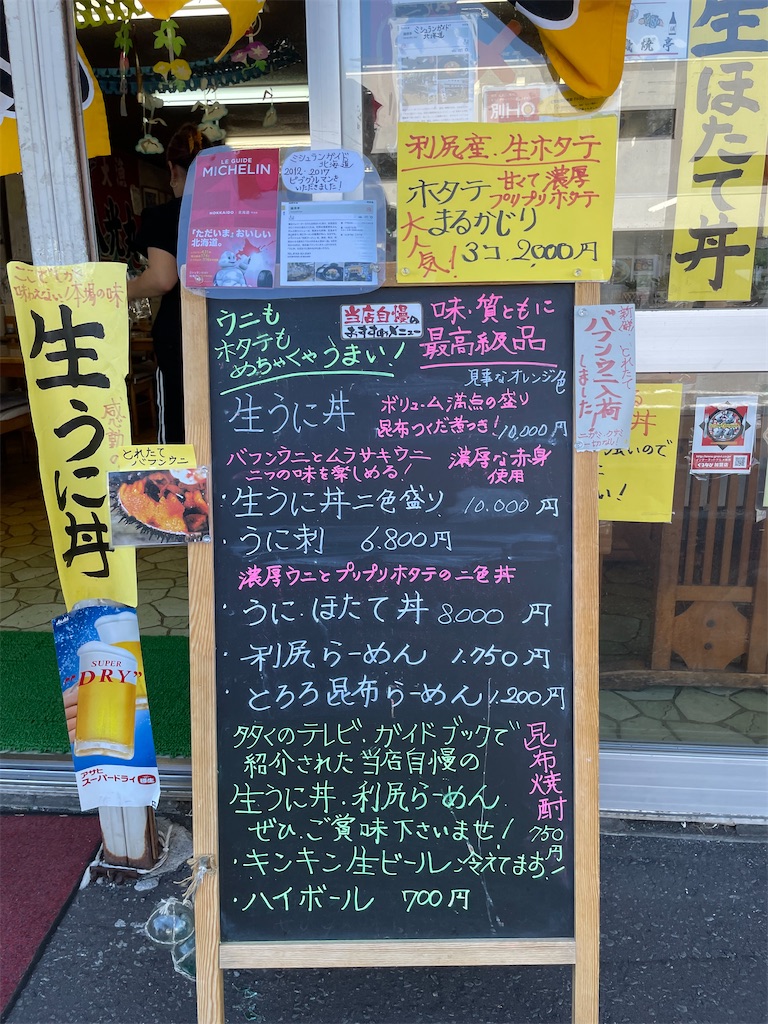 生ほたて丼
ミシュランガイド
北海道
別HO
利尻産.生ホタテ
ホタテ 甘くて濃厚
プリプリホタテ
まるかじり
大人気! 3コ 2000円
LE GUIDE
MICHELIN
「ただいま」おいしい
北海道。
ミシュランガイド
北海道
2012・2017
ビブグルマンを
いただきました!
味わえない!本場の味
生うに丼
感動の
とれたて
バフンウニ
Asahi
SUPER
"DRY"
アサヒ
スーパードライ
新鮮 とれたて
バフンウニ入荷
しました
ウニも
ホタテも
めちゃくちゃうまい!
当店自慢の
おすすめメニュー
味・質ともに
最高級品
見事なオレンジ色
生うに丼 ボリューム満点の盛り
昆布つくだ煮つき! 10,000円
バフンウニとムラサキウニ
二つの味を楽しめる!
濃厚な赤身
使用
・生うに丼二色盛り 10.000円
・うに刺 6.800円
濃厚ウニとプリプリホタテの二色丼
・うに・ほたて丼 8000円
・利尻らーめん 1.750円
・とろろ昆布らーめん 1.200円
タタくのテレビ.ガイドブックで
紹介された当店自慢の
生うに丼.利尻らーめん
ぜひご賞味下さいませ!
昆布焼酎
750円
・キンキン生ビール冷えてます!
・ハイボール 700円